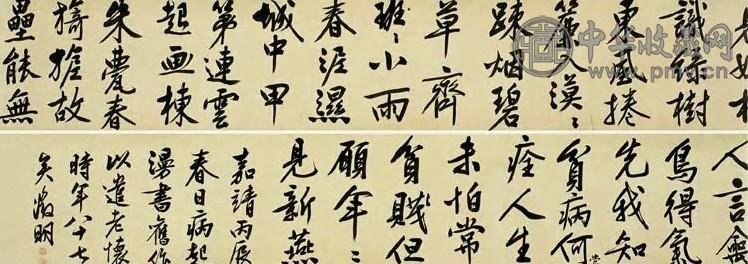 如相
識綠樹
東風捲
簾人漠〻
疎烟碧
草齊
班〻小雨
春泥濕
城中甲
第連雲
起画棟
朱甍春
旖旎故
壘能無
人言禽
鳥得氣
先我知
貧病何
痊人生
未怕常
貧賤但
願年〻
見新燕
嘉靖丙辰
春日病起
漫書舊作
以遣老懷
時年八十七
矣徵明
中华收藏网